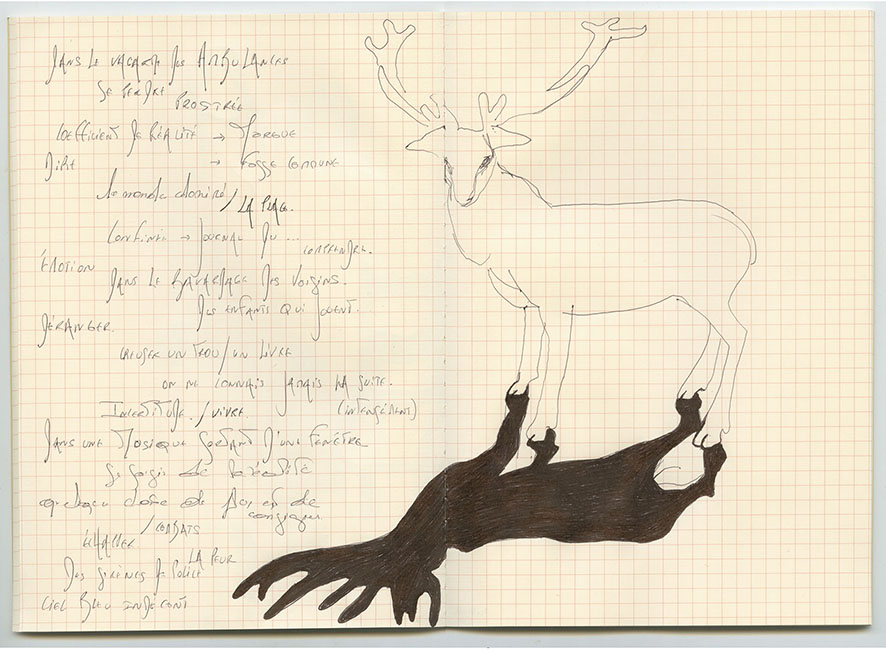 DANS LE VACARME DES AMBULANCES
SE PERDRE
PROSTRÉE
COEFFICIENT DE RÉALITÉ → MORGUE
DIRE → FOSSE COMMUNE
le monde d'omiré / LA PEAU.
CONFINÉE → JOURNAL DU ...
COMPRENDRE.
ÉMOTION
DANS LE BAVARDAGE DES VOISINS.
DES ENFANTS QUI JOUENT.
DÉRANGER.
CREUSER UN TROU / UN LIVRE
ON NE CONNAIS JAMAIS LA SUITE.
INCERTITUDE. / VIVRE. (INTENSÉMENT)
DANS UNE MUSIQUE SORTANT D'UNE FENÊTRE
de
quelque chose de de
/ COMBATS
ÉCHAPPER
LA PEUR
DES SIRÈNES DE POLICE
CIEL BLEU INDÉCENT